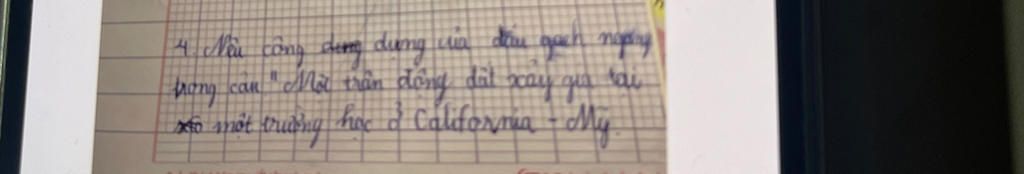 4. Nêu công dụng của dấu gạch ngang
trong câu "Một trận động đất xảy ra tại
một trường học ở California - Mỹ.